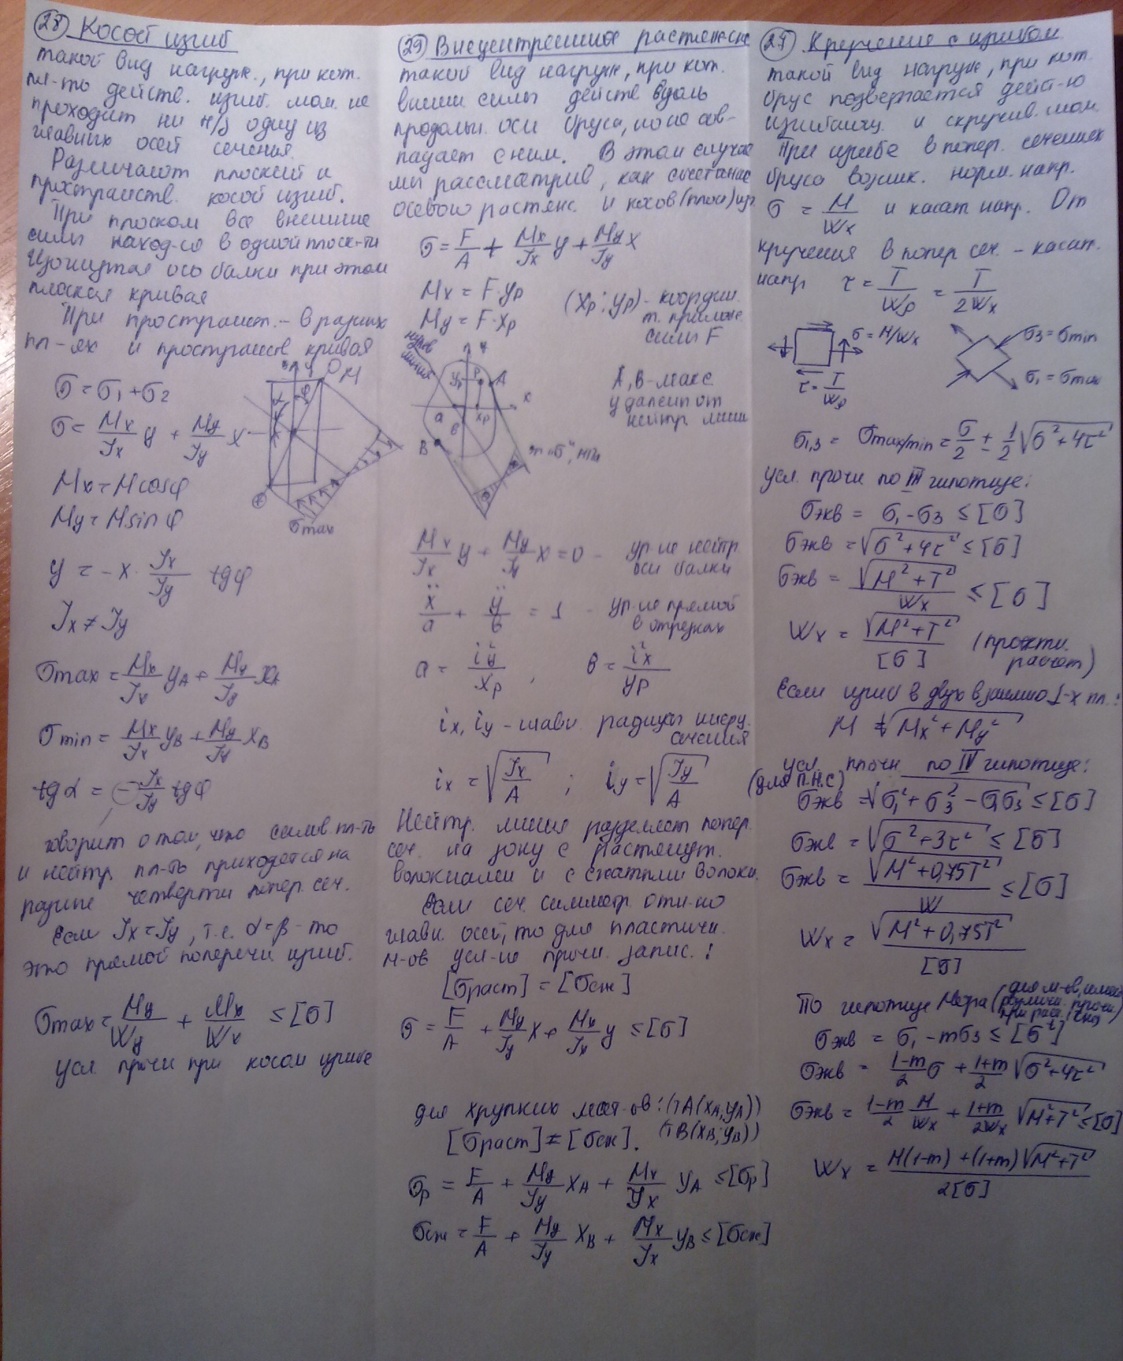 28 Косой изгиб
такой вид нагруж., при кот.
пл-ть действ. изгиб. мом. не
проходит ни ч/з одну из
главных осей сечения.
Различают плоский и
пространств. косой изгиб.
При плоском все внешние
силы наход-ся в одной плоск-ти
Изогнутая ось балки при этом
плоская кривая
При пространст. – в разных
пл-ях и пространств кривая
σ = σ1 + σ2
σ = Mx/Jx y + My/Jy x
Mx = M cosφ
My = M sin φ
M
σmax
y = -x · Jx/Jy tgφ
Jx ≠ Jy
σmax = Mx/Jx yA + My/Jy xA
σmin = Mx/Jx yB + My/Jy xB
tgα = - Jx/Jy tgφ
говорит о том, что силов пл-ть
и нейтр пл-ть приходятся на
разные четверти попер. сеч.
Если Jx = Jy, т.е. α = β - то
это прямой поперечн изгиб.
σmax = My/Wy + Mx/Wx ≤ [σ]
усл прочн при косом изгибе
29 Внецентренное растяж-сж
такой вид нагруж, при кот.
внешн силы действ вдоль
продольн. оси бруса, но не сов-
падает с ним. В этом случае
мы рассматрив, как сочетание
осевого растяж. и косов (плоск) изг
σ = F/A + Mx/Jx y + My/Jy x
Mx = F·yp
My = F·xp
(xp; yp) - координ.
т. прилож
силы F
нулев
линия
y
yp
P
A
x
a
xp
в
B
А, В - макс
удален от
нейтр линии
Mx/Jx y + My/Jy x = 0 - ур-ие нейтр.
оси балки
x/a + y/в = 1 - ур-ие прямой
в отрезках
a = iy²/xp, в = ix²/yp
ix, iy - главн радиусы инерц.
сечения
ix = √Jx/A ; iy = √Jy/A
Нейтр. линия разделяет попер.
сеч. на зону с растянут.
волокнами и с сжатыми волокн.
Если сеч. симметр. отн-но
главн. осей, то для пластичн.
м-ов усл-ие прочн. запис.:
[σраст] = [σсж]
σ = F/A + My/Jy x + Mx/Jx y ≤ [σ]
для хрупких мат-ов: (т A(xA, yA))
[σраст] ≠ [σсж]. (т B(xB; yB))
σp = F/A + My/Jy xA + Mx/Jx yA ≤ [σp]
σсж = F/A + My/Jy xB + Mx/Jx yB ≤ [σсж]
27 Кручение с изгибом
такой вид нагруж, при кот.
брус подвергается дейст-ю
изгибающ. и скручив. мом.
При изгибе в попер. сечениях
бруса возник. норм. напр.
σ = M/Wx и касат напр. От
кручения в попер сеч. - касат.
напр τ = T/Wp = T/2Wx
σ = M/Wx
τ = T/Wp
σ3 = σmin
σ1 = σmax
σ1,3 = σmax/min = σ/2 ± 1/2 √σ² + 4τ²
усл. прочн по III гипотезе:
σэкв = σ1 - σ3 ≤ [σ]
σэкв = √σ² + 4τ² ≤ [σ]
σэкв = √M² + T²/Wx ≤ [σ]
Wx = √M² + T²/[σ] (проектн.
расчет)
Если изгиб в двух взаимно ⊥-х пл.:
M = √Mx² + My²
усл. прочн. по IV гипотезе:
(для П.Н.С) σэкв = √σ1² + σ3² - σ1σ3 ≤ [σ]
σэкв = √σ² + 3τ² ≤ [σ]
σэкв = √M² + 0,75T²/W ≤ [σ]
Wx = √M² + 0,75T²/[σ]
По гипотезе Мора (для м-ов, имеющ
различн. прочн
при раст.
σэкв = σ1 - mσ3 ≤ [σ]
σэкв = 1-m/2 σ + 1+m/2 √σ² + 4τ²
σэкв = 1-m/2 M/Wx + 1+m/2Wx √M² + T² ≤ [σ]
Wx = M(1-m) + (1+m)√M² + T²/2[σ]